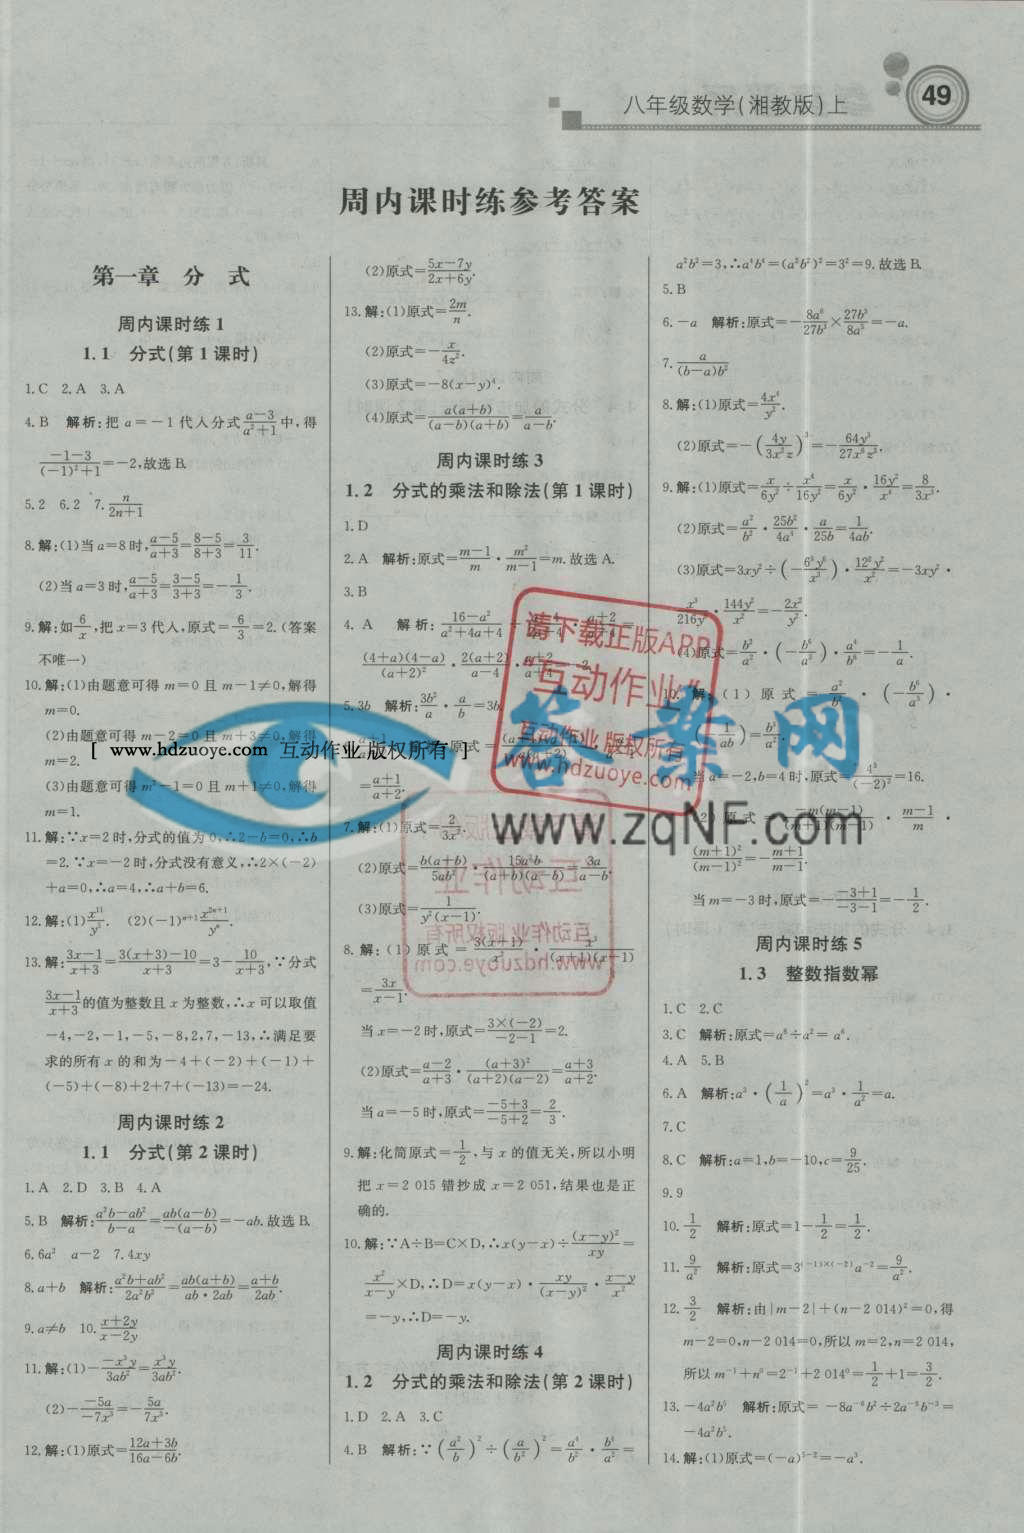 八年级数学(湘教版)上
49
周内课时练参考答案
第一章 分 式
周内课时练1
1.1 分式(第1课时)
1.C 2.A 3.A
4.B 解析:把 a=-1 代入分式(a-3)/(a²+1)中,得
(-1-3)/((-1)²+1)=-2,故选B.
5.2 6.2 7.n/(2n+1)
8.解:(1)当a=8时,(a-5)/(a+3)=(8-5)/(8+3)=3/11.
(2)当a=3时,(a-5)/(a+3)=(3-5)/(3+3)=-1/3.
9.解:如6/x,把x=3代入,原式=6/3=2.(答案
不唯一)
10.解:(1)由题意可得 m=0 且 m-1≠0,解得
m=0.
(2)由题意可得 m-2=0 且 m+3≠0,解得
m=2.
(3)由题意可得 m²-1=0 且 m+1≠0,解得
m=1.
11.解:∵x=2时,分式的值为0,∴2-b=0,∴b
=2.∵x=-2时,分式没有意义,∴2×(-2)
+a=0,∴a=4,∴a+b=6.
12.解:(1)x¹¹/y⁵. (2)(-1)ⁿ⁺¹x²ⁿ⁺¹/yⁿ.
13.解:(3x-1)/(x+3)=(3(x+3)-10)/(x+3)=3-10/(x+3),∵分式
(3x-1)/(x+3)的值为整数且x为整数,∴x可以取值
-4,-2,-1,-5,-8,2,7,-13,∴满足要
求的所有 x 的和为-4+(-2)+(-1)+
(-5)+(-8)+2+7+(-13)=-24.
周内课时练2
1.1 分式(第2课时)
1.A 2.D 3.B 4.A
5.B 解析:(a²b-ab²)/(b-a)=ab(a-b)/(-(a-b))=-ab.故选B.
6.6a² a-2 7.4xy
8.a+b 解析:(a²b+ab²)/(2a²b²)=ab(a+b)/(ab·2ab)=(a+b)/(2ab).
9.a≠b 10.(x+2y)/(x-2y)
11.解:(1)-(-x³y)/(3ab²)=x³y/(3ab²).
(2)-(-5a)/(-7x³)=-5a/(7x³).
12.解:(1)原式=(12a+3b)/(16a-6b).
(2)原式=(5x-7y)/(2x+6y).
13.解:(1)原式=2m/n.
(2)原式=-x/(4z²).
(3)原式=-8(x-y)⁴.
(4)原式=a(a+b)/((a-b)(a+b))=a/(a-b).
周内课时练3
1.2 分式的乘法和除法(第1课时)
1.D
2.A 解析:原式=(m-1)/m·m²/(m-1)=m.故选A.
3.B
4.A 解析:(16-a²)/(a²+4a+4)
(4+a)(4-a)/(a+2)²·2(a+2)/(a-4)
5.3b 解析:3b²/a·a/b=3b
=(a+1)/(a+2).
7.解:(1)原式=2/(3x²).
(2)原式=b(a+b)/(5ab²)·15a²b/((a+b)(a-b))=3a/(a-b).
(3)原式=1/(y²(x-1)).
8.解:(1)原式=3(x+1)/x²·x³/((x+1)(x-1))
=3x/(x-1).
当x=-2时,原式=3×(-2)/(-2-1)=2.
(2)原式=(a-2)/(a+3)·(a+3)²/((a+2)(a-2))=(a+3)/(a+2).
当a=-5时,原式=(-5+3)/(-5+2)=2/3.
9.解:化简原式=1/2,与x的值无关,所以小明
把 x=2 015 错抄成 x=2 051,结果也是正
确的.
10.解:∵A÷B=C×D,∴x(y-x)÷(x-y)²/(xy)=
x²/(x-y)×D,∴D=x(y-x)·xy/(x-y)²·(x-y)/x²
=-y,∴D=-y.
周内课时练4
1.2 分式的乘法和除法(第2课时)
1.D 2.A 3.C
4.B 解析:∵(a²/b)²÷(a/b²)²=a⁴/b²·b⁴/a²=
a²b²=3,∴a⁴b⁴=(a²b²)²=3²=9.故选B.
5.B
6.-a 解析:原式=-8a⁶/27b³×27b³/8a⁵=-a.
7.a/((b-a)b²)
8.解:(1)原式=4x⁴/y².
(2)原式=-(4y/(3x²z))³=-64y³/(27x⁶z³).
9.解:(1)原式=x/6y²÷x⁴/16y²=x/6y²·16y²/x⁴=8/3x³.
(2)原式=a²/b²·25b²/4a⁴·a/25b=1/4ab.
(3)原式=3xy²÷(-6³y⁶/x³)·12²y²/x²=-3xy²·
x³/216y⁶·144y²/x²=-2x²/y².
(4)原式=b²/a²·(-b⁶/a³)·a⁴/b⁸=-1/a.
解:(1)原式=a²/b·(-b⁶/a³)
(1/ab)=b³/a².
当a=-2,b=4时,原式=4³/(-2)²=16.
原式=-m(m-1)/((m+1)(m-1))·(m-1)/m·
(m+1)²/(m-1)²=-(m+1)/(m-1).
当m=-3时,原式=-(-3+1)/(-3-1)=-1/2.
周内课时练5
1.3 整数指数幂
1.C 2.C
3.C 解析:原式=a⁸÷a²=a⁶.
4.A 5.B
6.A 解析:a³·(1/a)²=a³·1/a²=a.
7.C
8.C 解析:a=1,b=-10,c=9/25.
9.9
10.1/2 解析:原式=1-1/2=1/2.
11.9/a² 解析:原式=3⁽⁻¹⁾ˣ⁽⁻²⁾a⁻²=9/a².
12.3/2 解析:由|m-2|+(n-2 014)²=0,得
m-2=0,n-2 014=0,所以m=2,n=2 014,
所以m⁻¹+n⁰=2⁻¹+2 014⁰=1/2+1=3/2.
13.-4a²b⁵ 解析:原式=-8a⁻⁶b²÷2a⁻⁸b⁻³=
-4a²b⁵.
14.解:(1)原式=(-a)⁵⁻²=-a³.
[ www.hdzuoye.com 互动作业 版权所有 ]
请下载正版APP
互动作业
互动作业 版权所有
www.hdzuoye.com
答案网
www.zqNF.com
互动作业 版权所有
www.hdzuoye.com